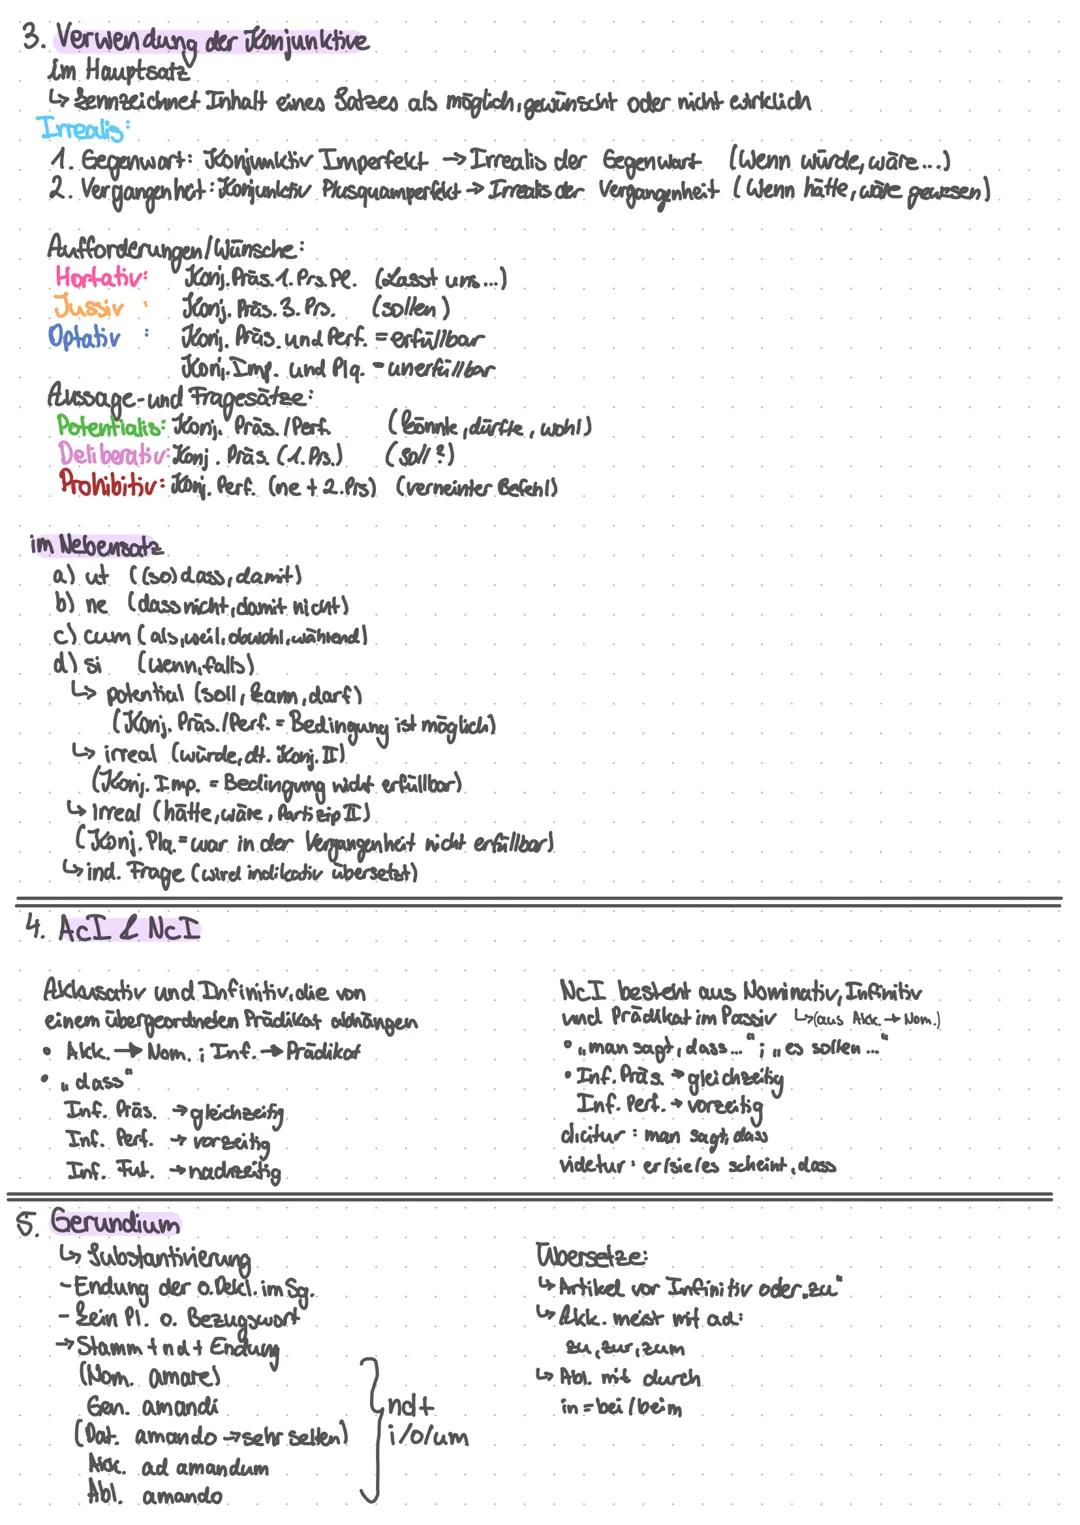 3. Verwendung der Konjunktive
im Hauptsatz
↳ kennzeichnet Inhalt eines Satzes als möglich, gewünscht oder nicht wirklich
Irrealis:
1. Gegenwart: Konjunktiv Imperfekt → Irrealis der Gegenwart (Wenn würde, wäre...)
2. Vergangenheit: Konjunktiv Plusquamperfekt → Irrealis der Vergangenheit (Wenn hätte, wäre gewesen)
Aufforderungen/Wünsche:
Hortativ: Konj. Präs. 1. Prs. Pl. (Lasst uns...)
Jussiv : Konj. Präs. 3. Prs. (sollen)
Optativ : Konj. Präs. und Perf. = erfüllbar
Konj. Imp. und Plq. = unerfüllbar
Aussage- und Fragesätze:
Potentialis: Konj. Präs. / Perf. (könnte, dürfte, wohl)
Deliberativ: Konj. Präs. (1. Prs.) (soll?)
Prohibitiv: Konj. Perf. (ne + 2. Prs) (verneinter Befehl)
im Nebensatz
a) ut ((so) dass, damit)
b) ne (dass nicht, damit nicht)
c) cum (als, weil, obwohl, während)
d) si (wenn, falls)
↳ potential (soll, kann, darf)
(Konj. Präs. / Perf. = Bedingung ist möglich)
↳ irreal (würde, dt. Konj. II)
(Konj. Imp. = Bedingung nicht erfüllbar)
↳ irreal (hätte, wäre, Partizip II)
(Konj. Plq. = war in der Vergangenheit nicht erfüllbar)
↳ ind. Frage (wird indikativ übersetzt)
4. AcI & NcI
Akkusativ und Infinitiv, die von
einem übergeordneten Prädikat abhängen
• Akk. → Nom. ; Inf. → Prädikat
• „dass"
Inf. Präs. → gleichzeitig
Inf. Perf. → vorzeitig
Inf. Fut. → nachzeitig
NcI besteht aus Nominativ, Infinitiv
und Prädikat im Passiv ↳ (aus Akk. → Nom.)
• „man sagt, dass..." ; „es sollen..."
• Inf. Präs. → gleichzeitig
Inf. Perf. → vorzeitig
dicitur : man sagt, dass
videtur : er/sie/es scheint, dass
5. Gerundium
↳ Substantivierung
- Endung der o. Dekl. im Sg.
- kein Pl. o. Bezugswort
→ Stamm + nd + Endung
(Nom. amare)
Gen. amandi
(Dat. amando → sehr selten)
Akk. ad amandum
Abl. amando
nd +
i/o/um
Übersetze:
↳ Artikel vor Infinitiv oder „zu"
↳ Akk. meist mit ad:
zu, zur, zum
↳ Abl. mit durch
in = bei / beim